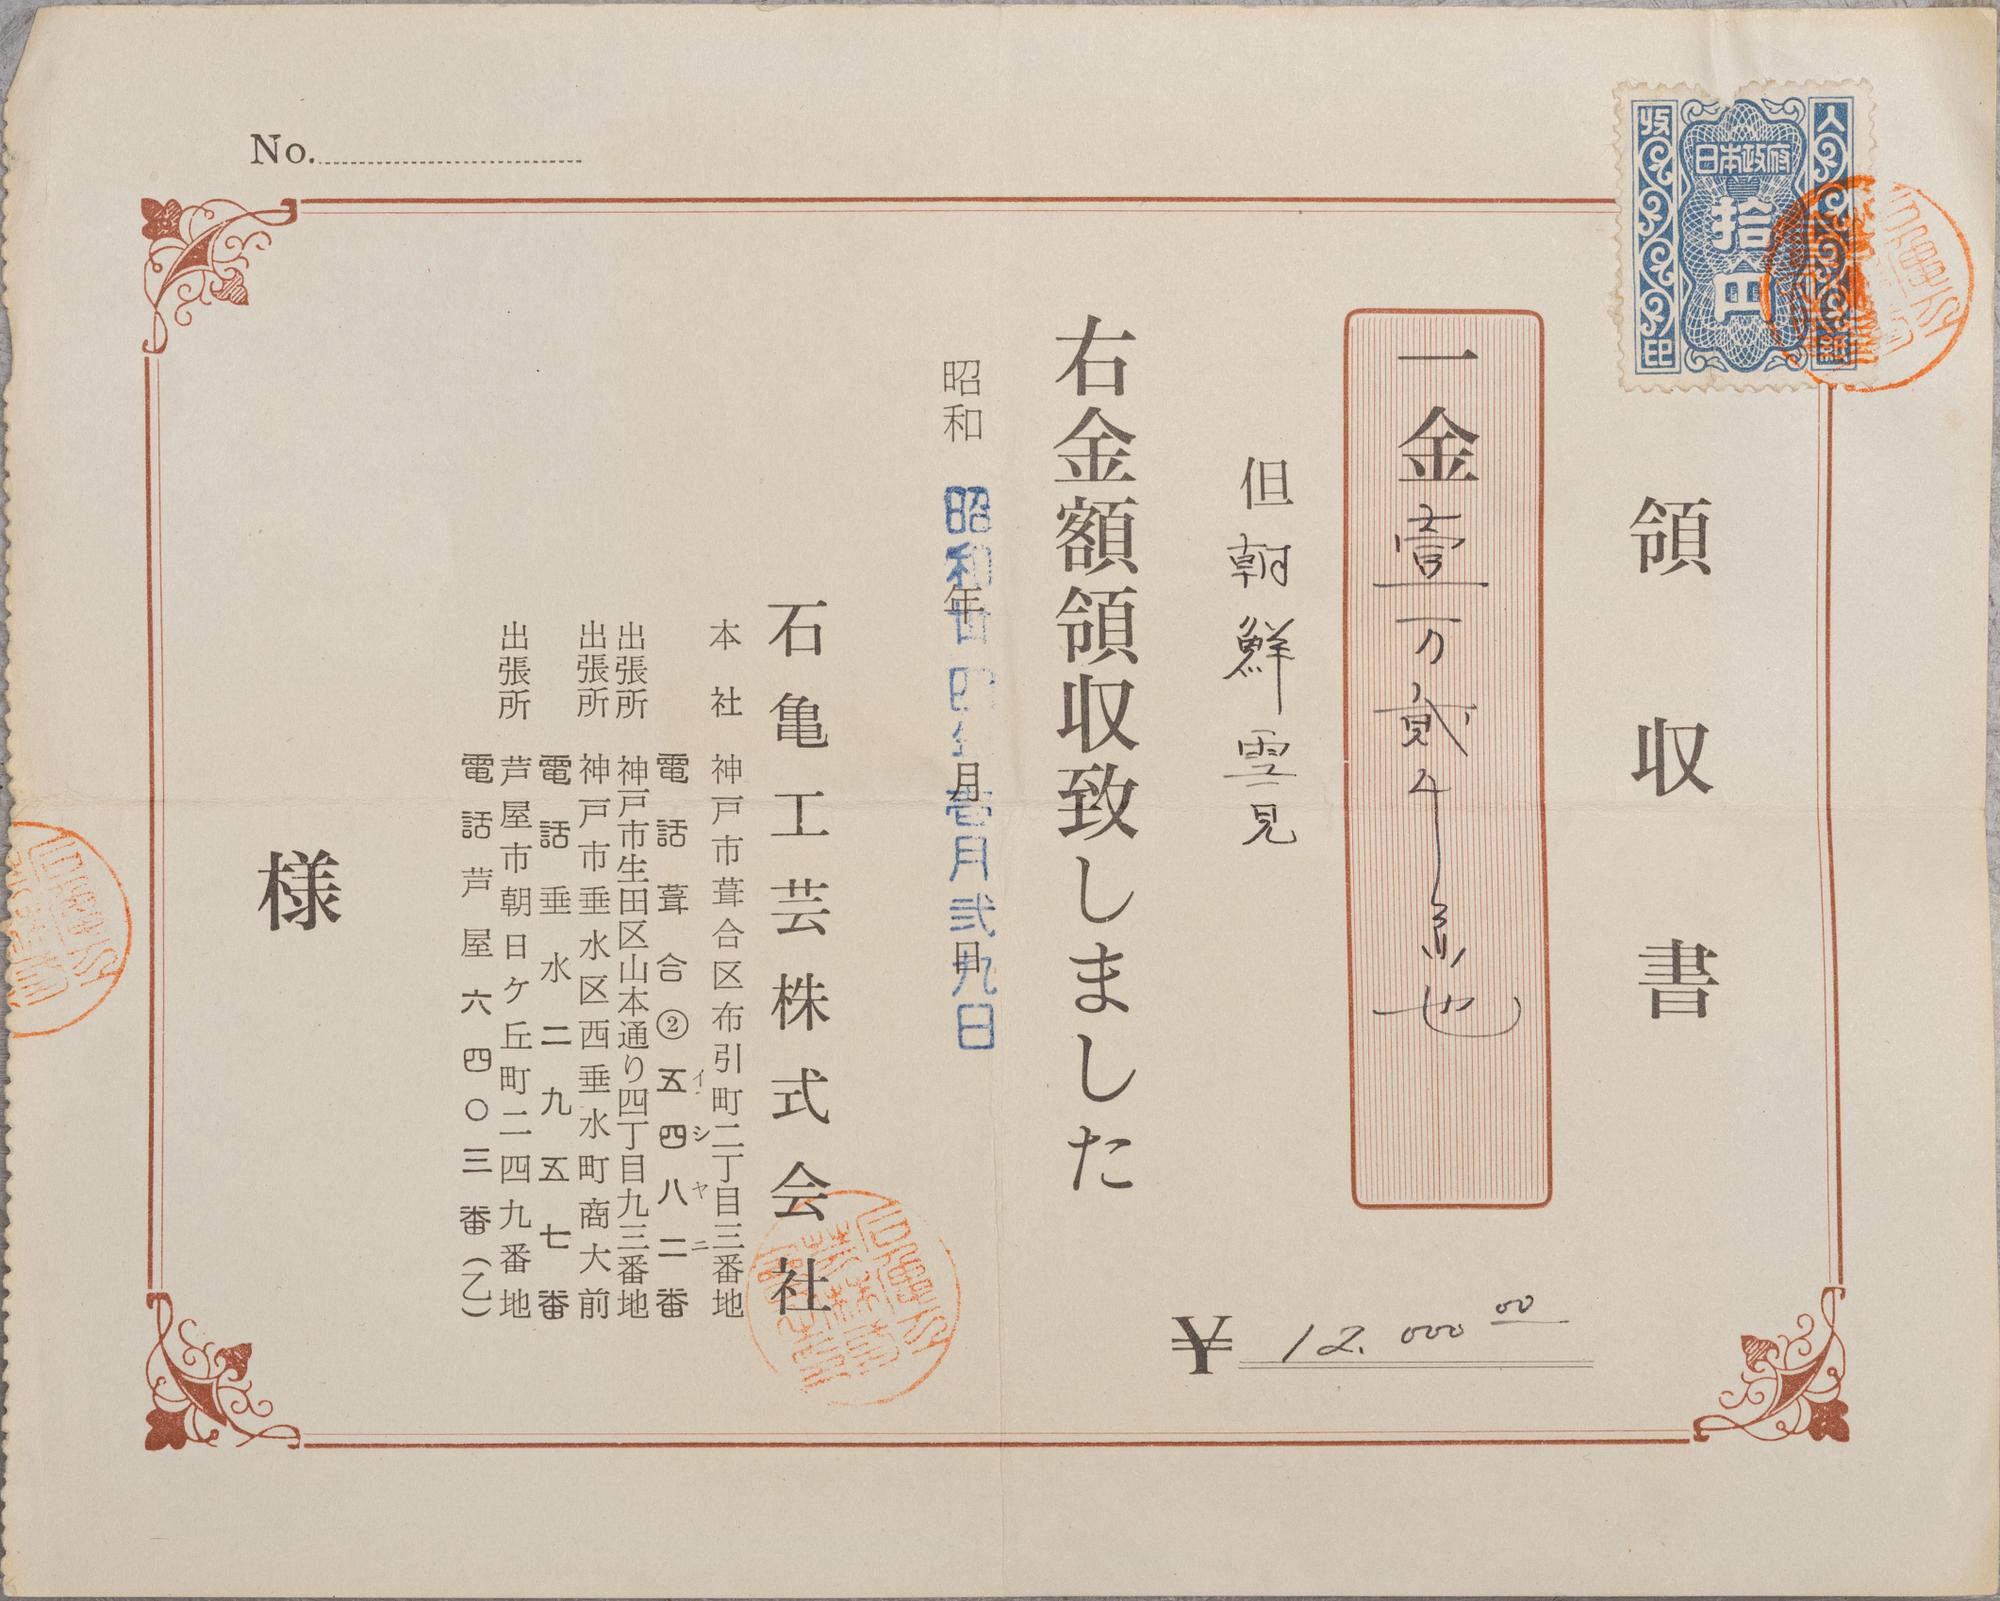 No.
收入印紙
日本政府
拾円
領収書
一金壹万貳千也
但朝鮮雪見
¥ 12.000 00
右金額領収致しました
昭和 年 月 日
昭和廿四年壱月弐九日
石亀工芸株式会社
本社 神戸市葺合区布引町二丁目三番地
イシヤニ
電話葺合②五四八二番
出張所 神戸市生田区山本通り四丁目九三番地
出張所 神戸市垂水区西垂水町商大前
電話垂水二九五七番
出張所 芦屋市朝日ケ丘町二四九番地
電話芦屋六四〇三番(乙)
様